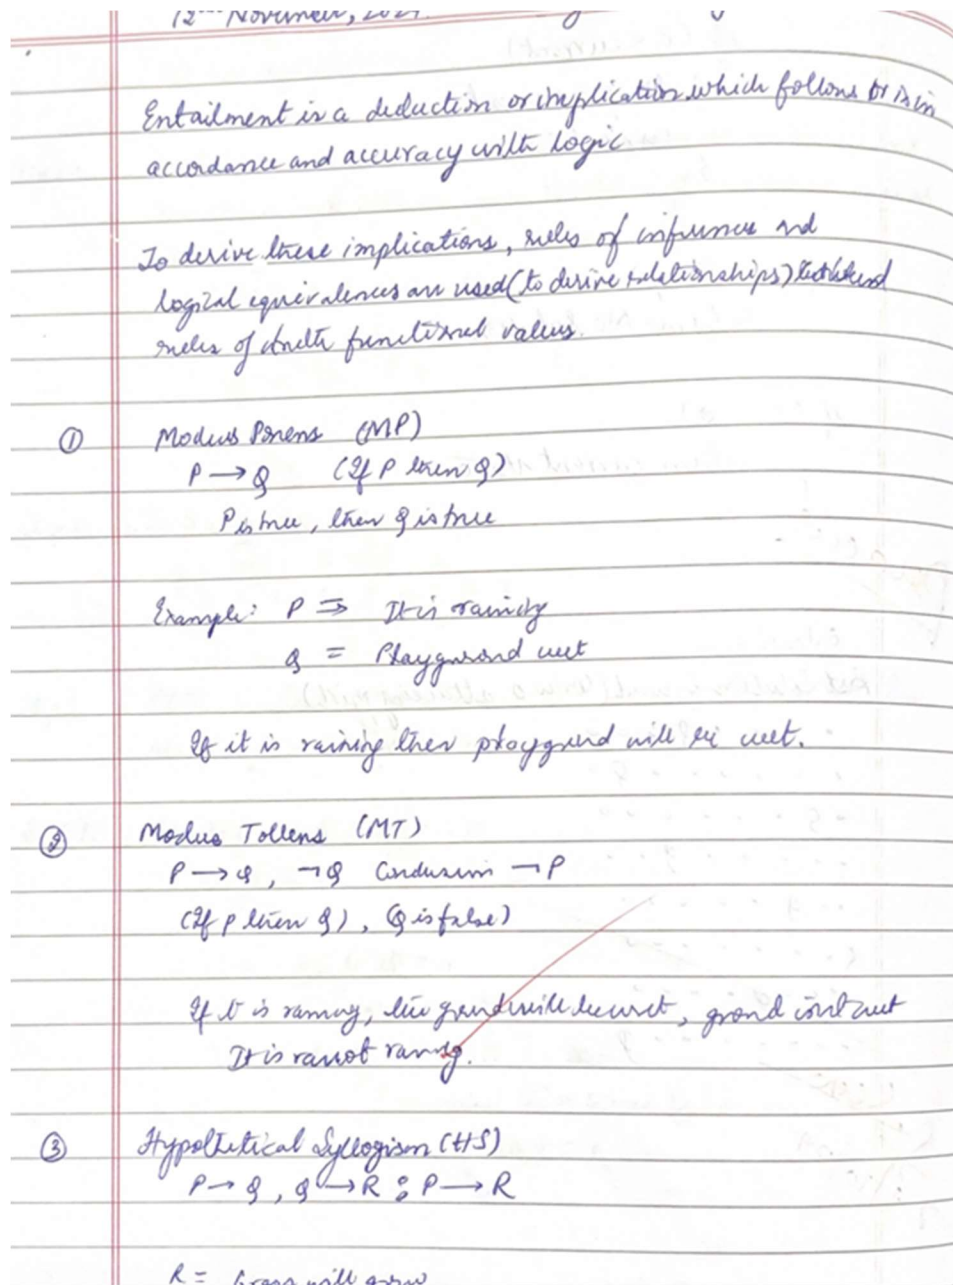 12th November, 2021.
Entailment is a deduction or implication which follows or is in
accordance and accuracy with logic
To derive these implications, rules of inference and
logical equivalences are used (to derive relationships)
rules of truth functional values.
① Modus Ponens (MP)
P → Q (If P then Q)
P is true, then Q is true
Example: P ⇒ It is raining
Q = Playground wet
If it is raining then playgrund will be wet.
② Modus Tollens (MT)
P → Q, ¬Q Conclusion ¬P
(If p then Q), Q is false)
If it is raining, the grund will be wet, grond isnt wet
It is not raining.
③ Hypothetical Syllogism (HS)
P → Q, Q → R : P → R
R = Grass will grow